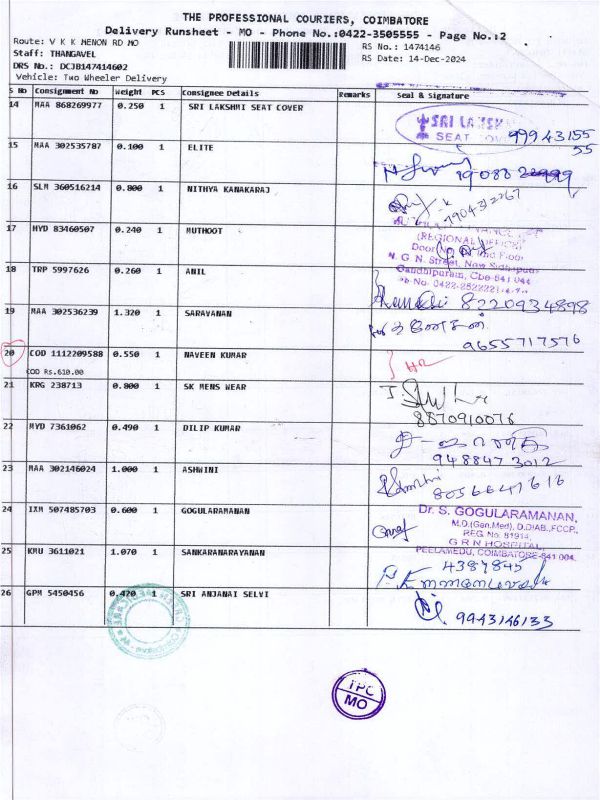 THE PROFESSIONAL COURIERS, COIMBATORE
Delivery Runsheet - MO - Phone No.:0422-3505555 - Page No.:2
Route: V K K MENON RD MO
Staff: THANGAVEL
DRS No.: DCJB147414602
Vehicle: Two Wheeler Delivery
RS No.: 1474146
RS Date: 14-Dec-2024
S No Consignment No Weight PCS Consignee Details Remarks Seal & Signature
14 MAA 868269977 0.250 1 SRI LAKSHMI SEAT COVER
SRI LAKSH
SEAT COV 99943155
55
15 MAA 302535787 0.100 1 ELITE
16 SLM 360516214 0.800 1 NITHYA KANAKARAJ
7904312267
17 HYD 83460507 0.240 1 MUTHOOT
(REGIONAL OFFICE)
Door No. 2nd Floor
N. G. N. Street, New Sidhapudur
Gandhipuram, Cbe-641 044
18 TRP 5997626 0.260 1 ANIL
8220934898
19 MAA 302536239 1.320 1 SARAVANAN
9655717576
20 COD 1112209588 0.550 1 NAVEEN KUMAR
COD Rs.610.00
21 KRG 238713 0.800 1 SK MENS WEAR
8870910076
22 MYD 7361062 0.490 1 DILIP KUMAR
948847 3012
23 MAA 302146024 1.000 1 ASHWINI
8056647616
24 IXM 507485703 0.600 1 GOGULARAMANAN
Dr. S. GOGULARAMANAN,
M.D.(Gen.Med), D.DIAB.,FCCP.,
REG No. 81914,
G R N HOSPITAL,
PEELAMEDU, COIMBATORE-641 004.
25 KMU 3611021 1.070 1 SANKARANARAYANAN
4387845
26 GPM 5450456 0.420 1 SRI ANJANAI SELVI
9943146133
TPC
MO